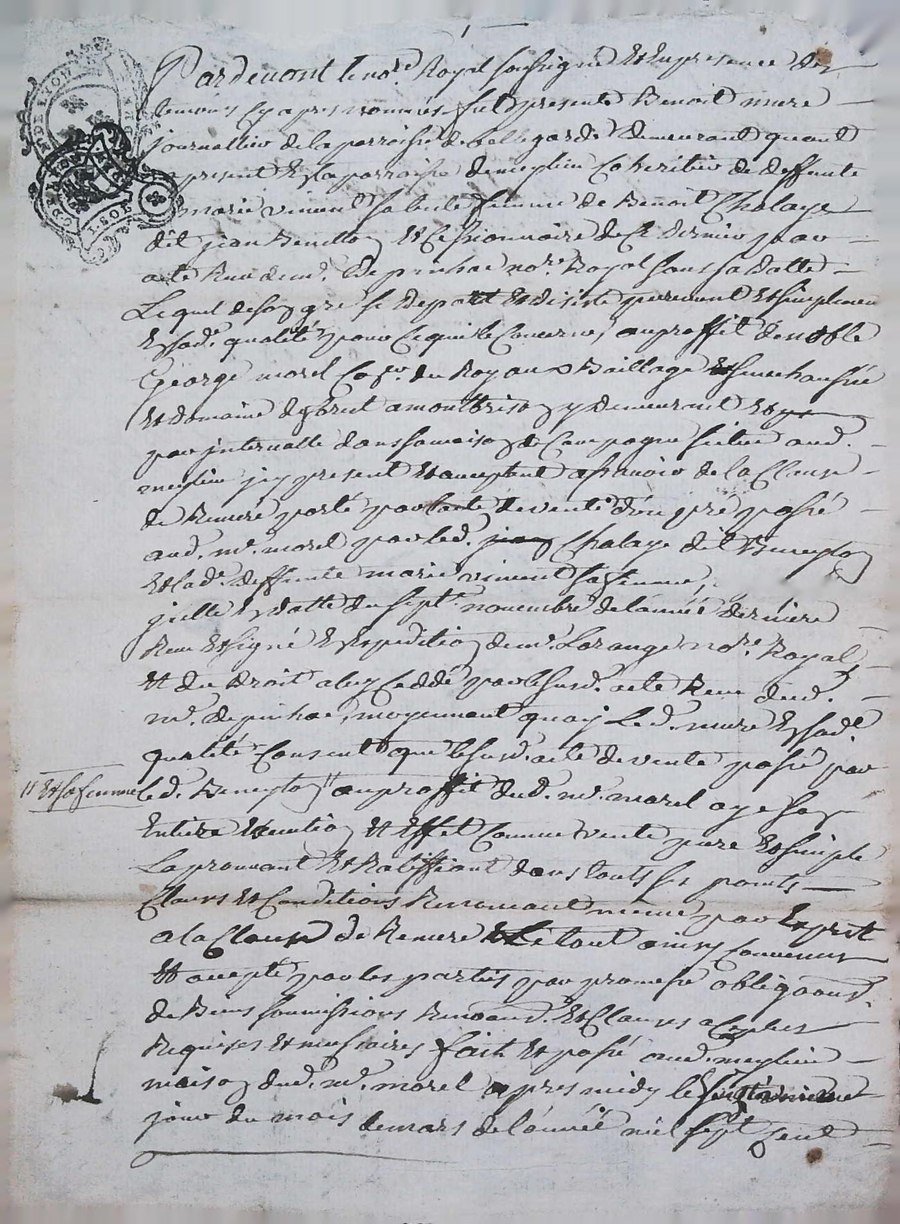 Pardevant le no.re Royal soussigné Et En presence des
temoins cy apres nommés fut presente Benoit mure
journallier de la parroisse de bellegarde demeurant quant
a present En la parroisse de meylieu Coheritier de deffunte
marie vincent sa tante femme de Benoit Chalaye
dit jean Beneton Et Cessionnaire de Ce dernier par
acte Receu de m.e depinhac no.re Royal sous sa datte
Lequel de son gré se depart Et desiste purement Et simplement
En sad. qualité pour Ce qui le Concerne, au proffit de noble
George morel Con.er du Roy aux Baillage Senechaussée
Et domaine de forest a montbrison y demeurant Et
par intervalle dans sa maison de Campagne située aud.
meylieu jcy present Et acceptant a scavoir de la Clause
de Remeré porté par l'acte de vente d'un pré passé
aud. m.r morel par led. Chalaye dit Beneton
Et lad. deffunte marie vincent sa femme,
jcelle En datte du sept.e novembre de l'année derniere
Receu Et signé En Expedition de m.e Lorange no.re Royal,
Et du droit a luy Ceddé par le susd. acte Receu dud.
m.e depinhac, moyennant quoy Led. mure En sad.e
qualité Consent que le susd. acte de vente passé par
led. Beneton au proffit dud. m.r morel aye son
// Et sa femme
Entiere Execution Et Effet Comme vente pure Et simple
La prouvant Et Ratiffiant dans touts ses points
Clauses Et Conditions Renoncant meme par Exprit
a la Clause de Remeré Le tout ainsy Convenus
Et accepté par les parties par promesse obligaons
de Biens soumissions Renoncaõns Et Clauses a Ce plus
Requises Et necessaires fait Et passé aud. meylieu
maison dud. m.r morel apres midy le
jour du mois de mars de l'année mil sept Cent